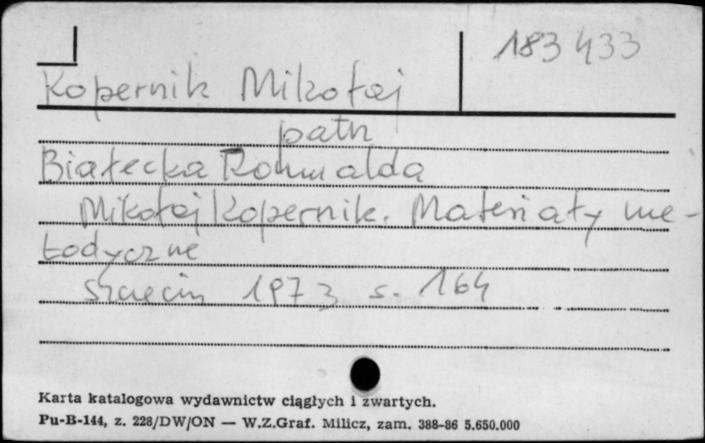 183433
Kopernik Mikołaj
patrz
Białecka Romualda
Mikołaj Kopernik. Materiały me-
todyczne
Szczecin 1973 s. 164
Karta katalogowa wydawnictw ciągłych i zwartych.
Pu-B-144, z. 228/DW/ON — W.Z.Graf. Milicz, zam. 388-86 5.650.000